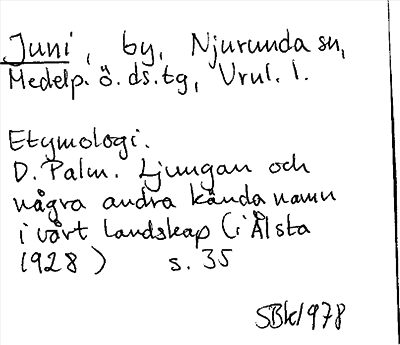 Juni, by, Njurunda sn,
Medelp. ö. ds. tg, Vrul. l.
Etymologi.
D. Palm. Ljungan och
några andra kända namn
i vårt landskap (i Ålsta
1928) s. 35
SBk1978